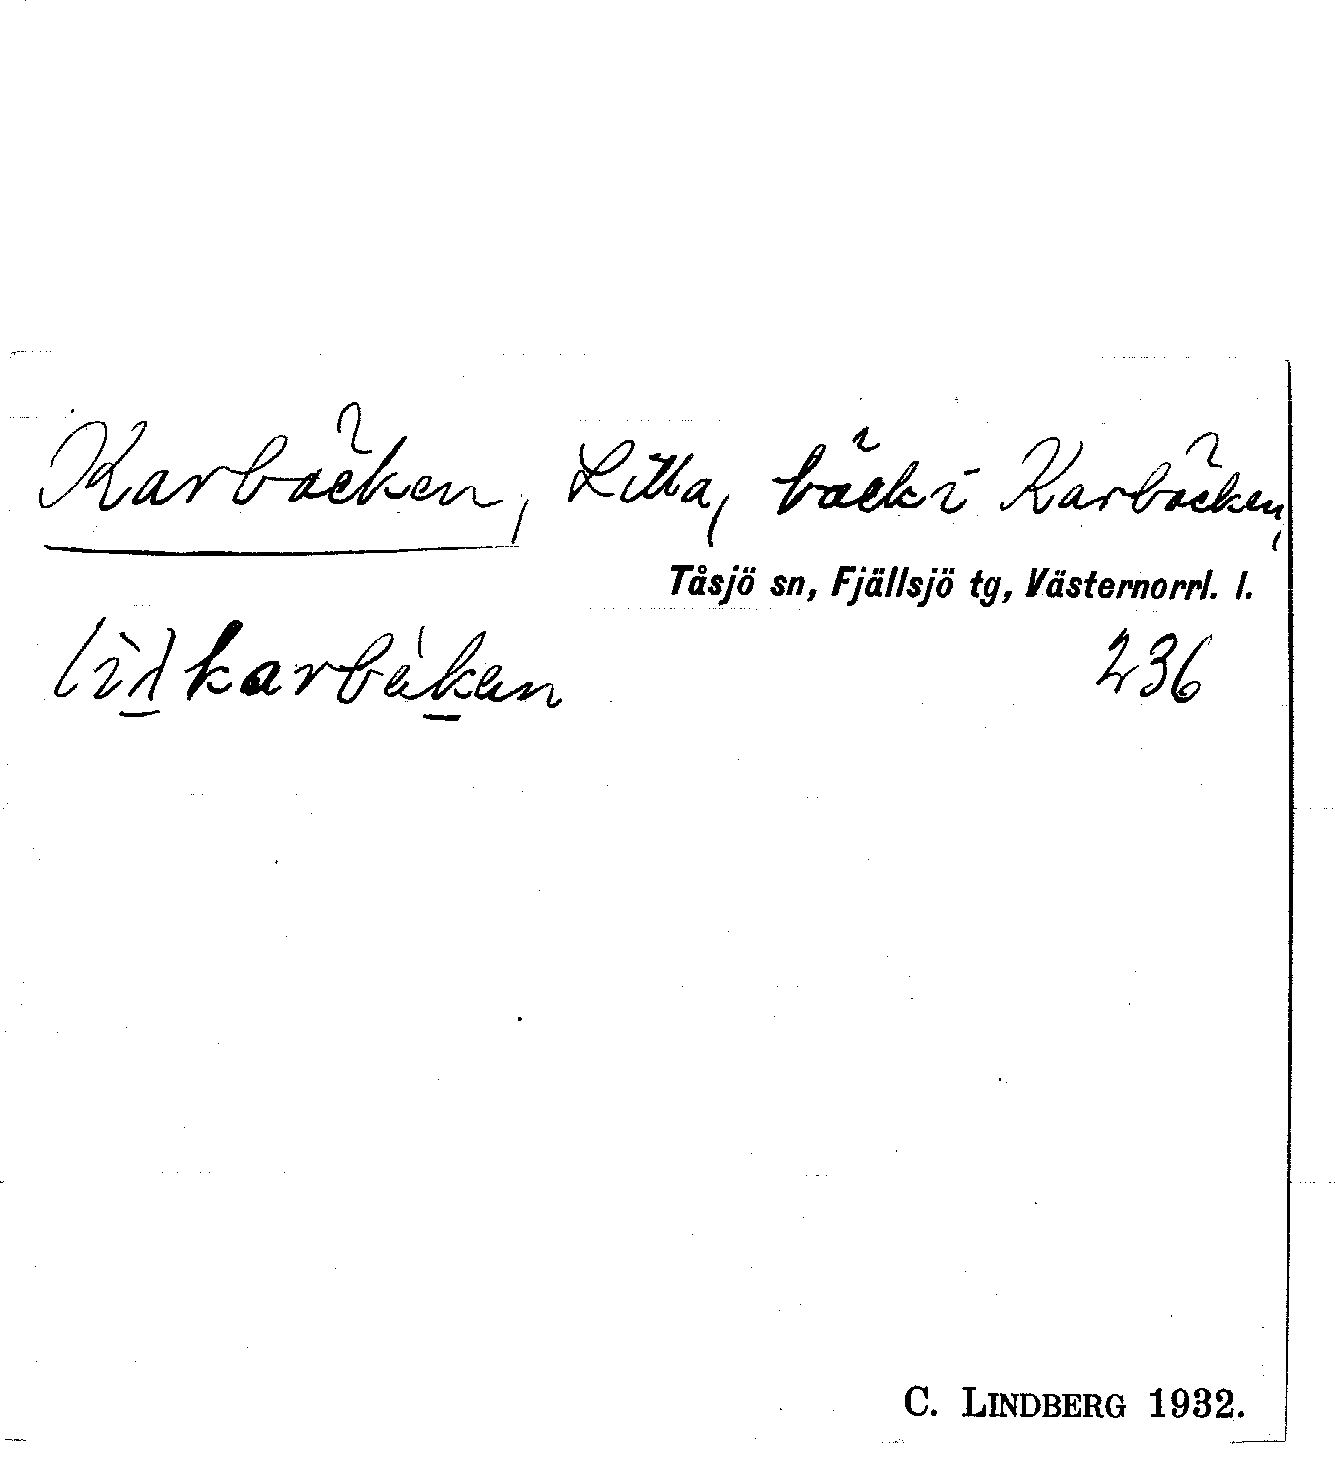 Karbäcken, Lilla, bäck i Karbäcken,
Tåsjö sn, Fjällsjö tg, Västernorrl. l.
236
C. LINDBERG 1932.